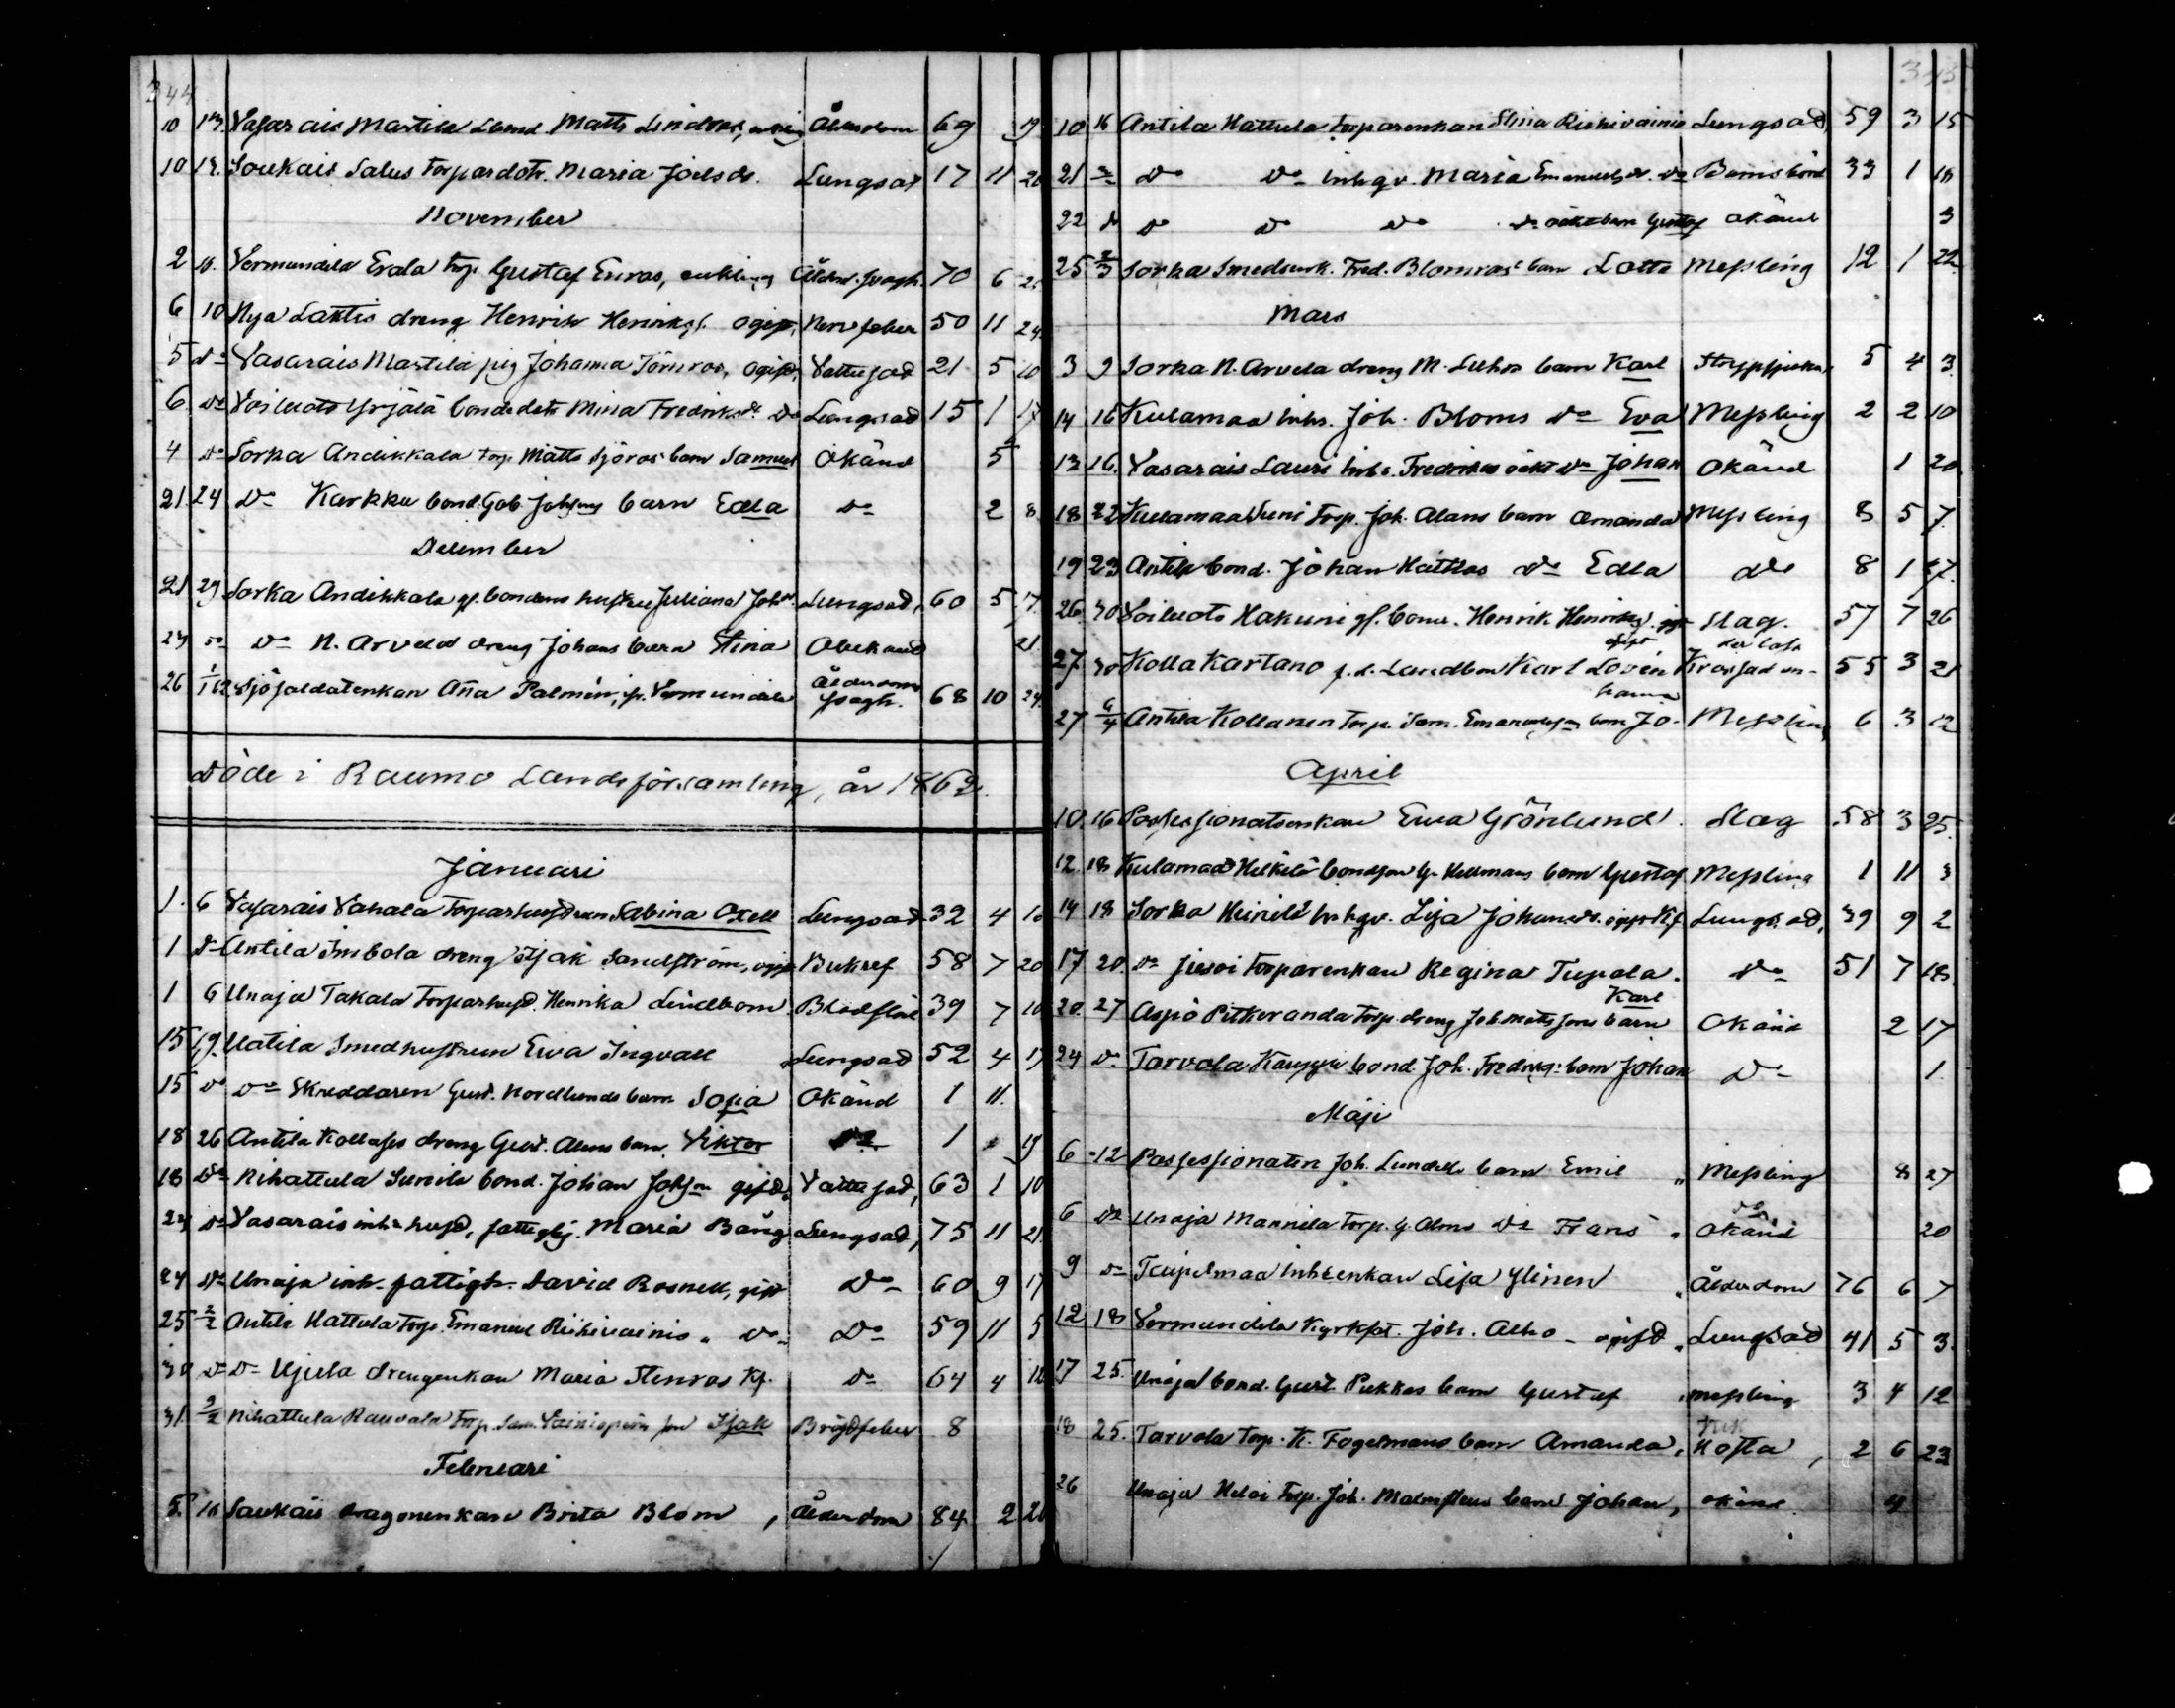 344
10 13. Vasarais Martila Lbond. Matts Lindros, enkling Ålderdom 69 19
10 13. Soukais Salus torpardotr. Maria Joelsdr. Lungsot 17 11 26
November
2 10. Vermundila Erola torp. Gustaf Enros, enkling Ålderd. svagh. 70 6 25
6 10 Nya Lattis dreng Henrik Henrikss. ogift, Nervfeber 50 11 24
5 do Vasarais Martila pig Johanna Törnroos, ogift, Vattusot 21 5 10
6 do Voiluoto Yrjälä bondedotr Mina Fredriksdr. do Lungsot 15 1 17
4 do Sorka Andikkala torp. Matts Sjöros' barn Samuel Okänd 5
21 24 do Karkku bond. Gab. Johssons barn Edla do 2 8
December
21 29 Sorka Andikkala gl. bondens hustru Juliana Johdr. Lungsot, 60 5 17
23 do do N. Arvela dreng Johans barn Stina Obekand 21
26 1/1 62 Sjösoldatenkan Anna Palmén, fr. Vermundila Ålderdoms svagh. 68 10 24
Döde i Raumo Landsförsamling, år 1862.
Januari
1. 6 Vasarais Vahala Torparhustrun Sabina Oxell Lungsot 32 4 10
1 do Antila Imbola dreng Isak Sandström, ogift Bukref 58 7 20
1 6 Unaja Takala Torparhust. Henrika Lindbom Blodflod 39 7 10
15 19. Uotila Smedhustrun Ewa Ingvall Lungsot 52 4 17
15 do do Skreddaren Gust. Nordlunds barn Sofia Okänd 1 11.
18 26 Antila Kollases dreng Gust. Alens barn Viktor do 1 19
18 do Nihattula Sunila bond. Johan Johsson gift, Vattusot, 63 1 10
23 do Vasarais inhs hust, fattighj. Maria Bång Lungsot, 75 11 21.
24 do Unaja inh. fattigh. David Rosnell, gift do 60 9 17
25 2/2 Antila Hattula Torp. Emanuel Riskivainio " do do 59 11 5
30 do do Ujula drengenkan Maria Stenros do 64 4 18
31. 2/2 Nihattula Rauvola Torp. Sam. Vainiopää's son Isak Bröstfeber 8
Februari
5. 10 Soukais dragonenkan Brita Blom, Ålderdom 84 2 21
345
10 16 Antila Hattula torparenkan Stina Riskivainio Lungsot, 59 3 15
21 2/3 do do inhqv. Maria Emanuelsdr. do Barnsbörd 33 1 18
22 do do do do do oäkta barn Gustaf Okänd 3
25 2/3 Sorka Smedsenk. Fred. Blomros' barn Lotta Messling 12 1 22
Mars
3 9 Sorka N. Arvela dreng M. Luhos barn Karl Strypsjuka, 5 4 3
14 16 Kulamaa Inhs. Joh. Bloms do Eva Messling 2 2 10
13 16. Vasarais Lauri Inhs. Fredrikas oäkt do Johan Okänd 1 20
18 23 Kulamaa Suni Torp. Joh. Alans barn Amanda Messling 8 5 7
19 23 Antila bond. Johan Hattkas do Edla do 8 1 27.
26 30 Voiluoto Hakuni gl. bond. Henrik Henrikss. gift Slag. 57 7 26
27 30 Kolla Kartano f. d. Landbon Karl Lovén gift 55 3 21
27 6/4 Antila Kollanen Torp. Sam. Emanuelsson barn Johanna Messling 6 3 12
April
10. 16 Possessionatsenkan Ewa Grönlund. Slag 58 3 25.
12. 18 Kulamaa Heikilä bondson G. Hellmans barn Gustaf Messling 1 11 3
14 18 Sorka Heinilä Inhqv. Lisa Johansdr. ogift Lungsot, 39 9 2
17 20. do Jusoi torparenkan Regina Tupala. do 51 7 18
20. 27 Aspö Pitkeranda Torp. dreng Joh. Mattssons barn Karl Okänd 2 17
24 do Tarvola Kauppi bond. Joh. Fredriks. barn Johan do 1.
Maji
6 12 Possessionaten Joh. Lundells barn Emil " Messling 8 27
6 do Unaja Mannila Torp. G. Alms do Frans " Okänd 20
9 do Taipelmaa Inhsenkan Lisa Ylinen " Ålderdom 76 6 7
12 18 Vermundila Kyrkst. Joh. Alho - ogift " Lungsot 41 5 3.
17 25. Unaja bond. Gust. Pukkas barn Gustaf " Messling 3 4 12
18 25. Tarvola Torp. K. Fogelmans barn Amanda, Kik Hosta, 2 6 23
26 Unaja Heloi Torp. Joh. Malmstens barn Johan, okänd. 4